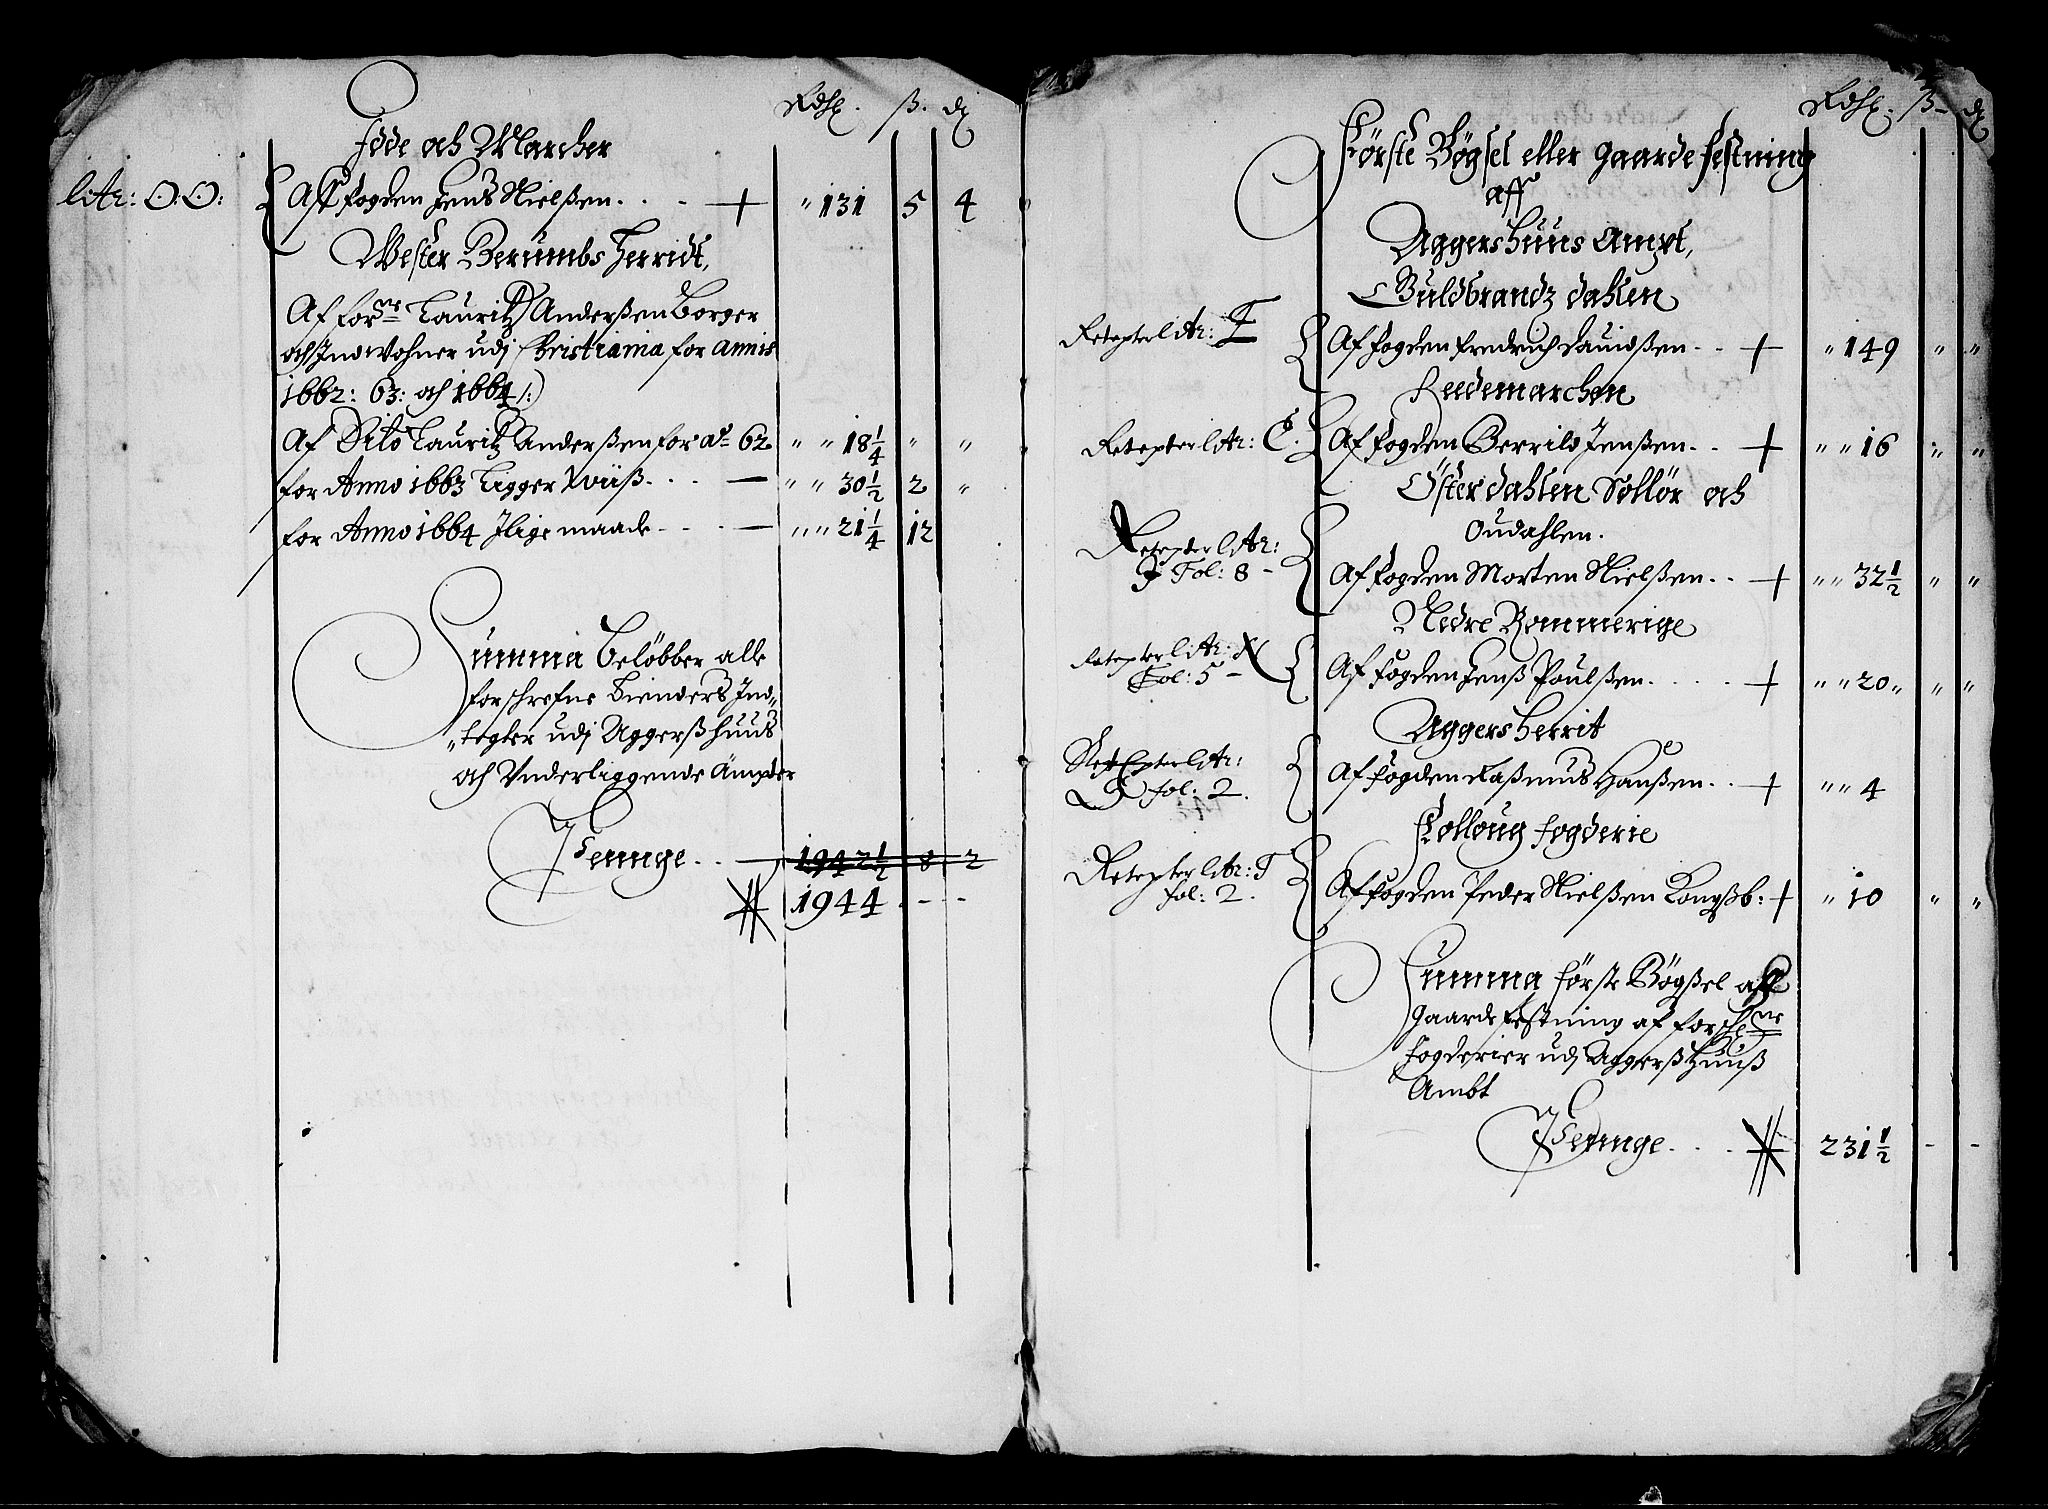 Rdlr. ß. d
Idde och Marcher
litr: O.O: Aff fogden Jens Nielßen. . . + " 131 5 4
Wester Berumbs Herridt,
Af for. Lauritz Anderßen Borger
och Indwohner udj Christiania for annis
1662: 63: och 1664 /:
Af Dito Lauritz Anderßen for a° 62 " " 18 1/4 " "
for Anno 1663 Ligger xviiß. . . . " " 30 1/2 2 "
for Anno 1664 Jlige maade - - - - " " 21 1/4 12
Summa Beløbber alle
forschrefne Bienders Ind-
"tegter udj Aggerßhuus
och Vnderliggende Ämpter
Penninge . . 1942 1/2 8 2
1944 - - -
Rdlr. ß d
Første Bøgsel eller gaarde festning
aff
Aggershuus Ampt,
Guldbrandz dahlen
Retepter litr: F Af fogden Fredrich Dauidßen - - + " 149 " "
Heedemarchen
Retepter litr: C. Af fogden Berrild Jenßen. . + " " 16 " "
Österdahlen Sollör och
Oudahlen.
Retepter litr: J Fol: 8 - Af fogden Morten Nielßen. . + " " 32 1/2 " "
Nedre Rommerige
Retepter litr: X Fol: 5 - Af fogden Jenß Poulßen. . . . . + " " 20 " " "
Aggers herrit
Retepter litr: fol: 2. Af fogden Raßmus Hanßen. . + " " 4
Folloug fogderie
Retepter litr: T fol: 2. Af fogden Peder Nielßen Kongßb: + " 10 " "
Summa første Bøgßel aff
Gaarde festning af forschr:ne
fogderier udj Aggerßhuuß
Ambt
Penninge . . . 231 1/2 - -